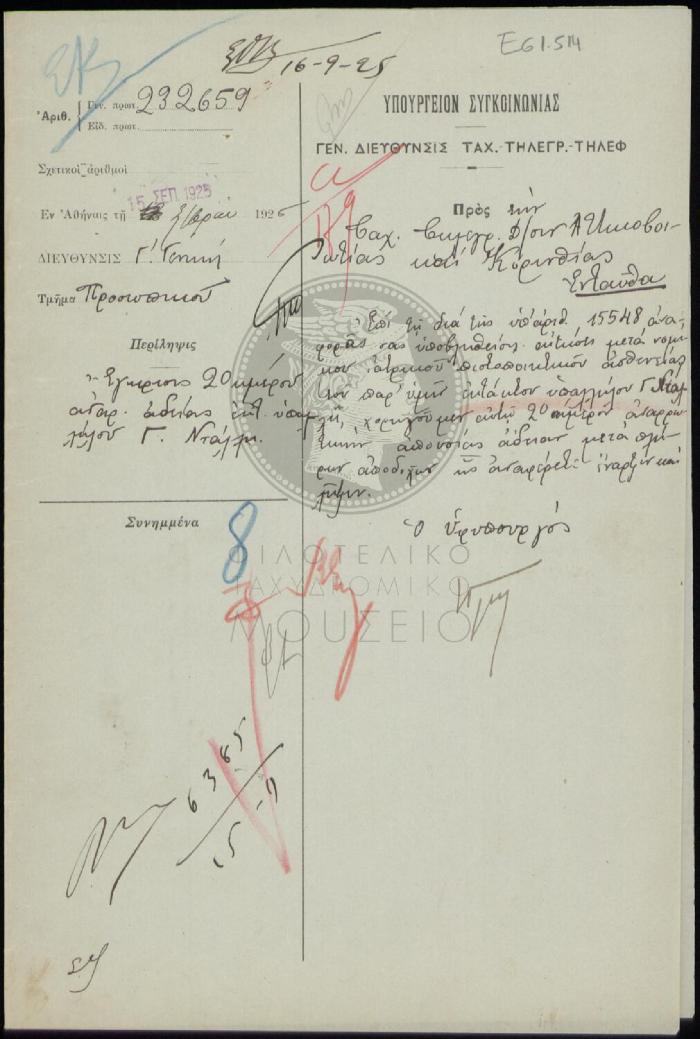 Ε61.514
16-9-25
Ἀριθ.
Γεν. πρωτ. 232659
Εἰδ. πρωτ.
Σχετικοὶ ἀριθμοί
15 ΣΕΠ. 1925
Ἐν Ἀθήναις τῇ 1925
ΔΙΕΥΘΥΝΣΙΣ Γ΄. Γενική
Τμῆμα Προσωπικοῦ
Περίληψις
Ἔγκρισις 20ημέρου
ἀναρ. ἀδείας ἐκτ. ὑπαλ
λήλου Γ. Ντάλμ.
Συνημμένα
8
6385
15-9
ΥΠΟΥΡΓΕΙΟΝ ΣΥΓΚΟΙΝΩΝΙΑΣ
ΓΕΝ. ΔΙΕΥΘΥΝΣΙΣ ΤΑΧ.-ΤΗΛΕΓΡ.-ΤΗΛΕΦ
Πρὸς τὴν
Ταχ. Τηλεγρ. Δ/σιν Ἀττικοβοι-
ωτίας καὶ Κορινθίας
Ἐνταῦθα
Ἐπὶ τῇ διὰ τῆς ὑπ' ἀριθ. 15548 ἀνα-
φορᾶς σας ὑποβληθείσης αἰτήσει μετὰ νομί-
μου ἰατρικοῦ πιστοποιητικοῦ ἀσθενείας
τοῦ παρ' ὑμῖν ἐκτάκτου ὑπαλλήλου Γ. Ντάλ
μη, χορηγοῦμεν αὐτῷ 20 ήμερον ἀναρρω
τικὴν ἀπουσίας ἄδειαν μετὰ πλή-
ρων ἀποδοχῶν ἧς ἀναφέρετε ἔναρξιν καὶ
λῆξιν.
Ὁ Ὑπουργός
ΦΙΛΟΤΕΛΙΚΟ
ΤΑΧΥΔΡΟΜΙΚΟ
ΜΟΥΣΕΙΟ